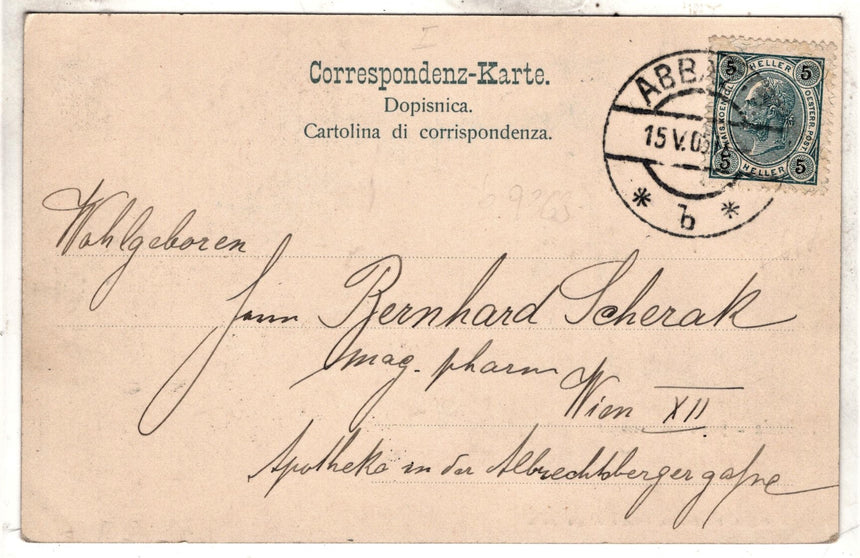 Correspondenz-Karte.
Dopisnica.
Cartolina di corrispondenza.
ABBA
15 V. 05
b
5 HELLER 5
KAIS. KOENIGL.
OESTERR. POST.
5 HELLER 5
Wohlgeboren
Herrn Bernhard Scherak
mag. pharm
Wien XII
Apotheke in der Albrechtsbergergasse